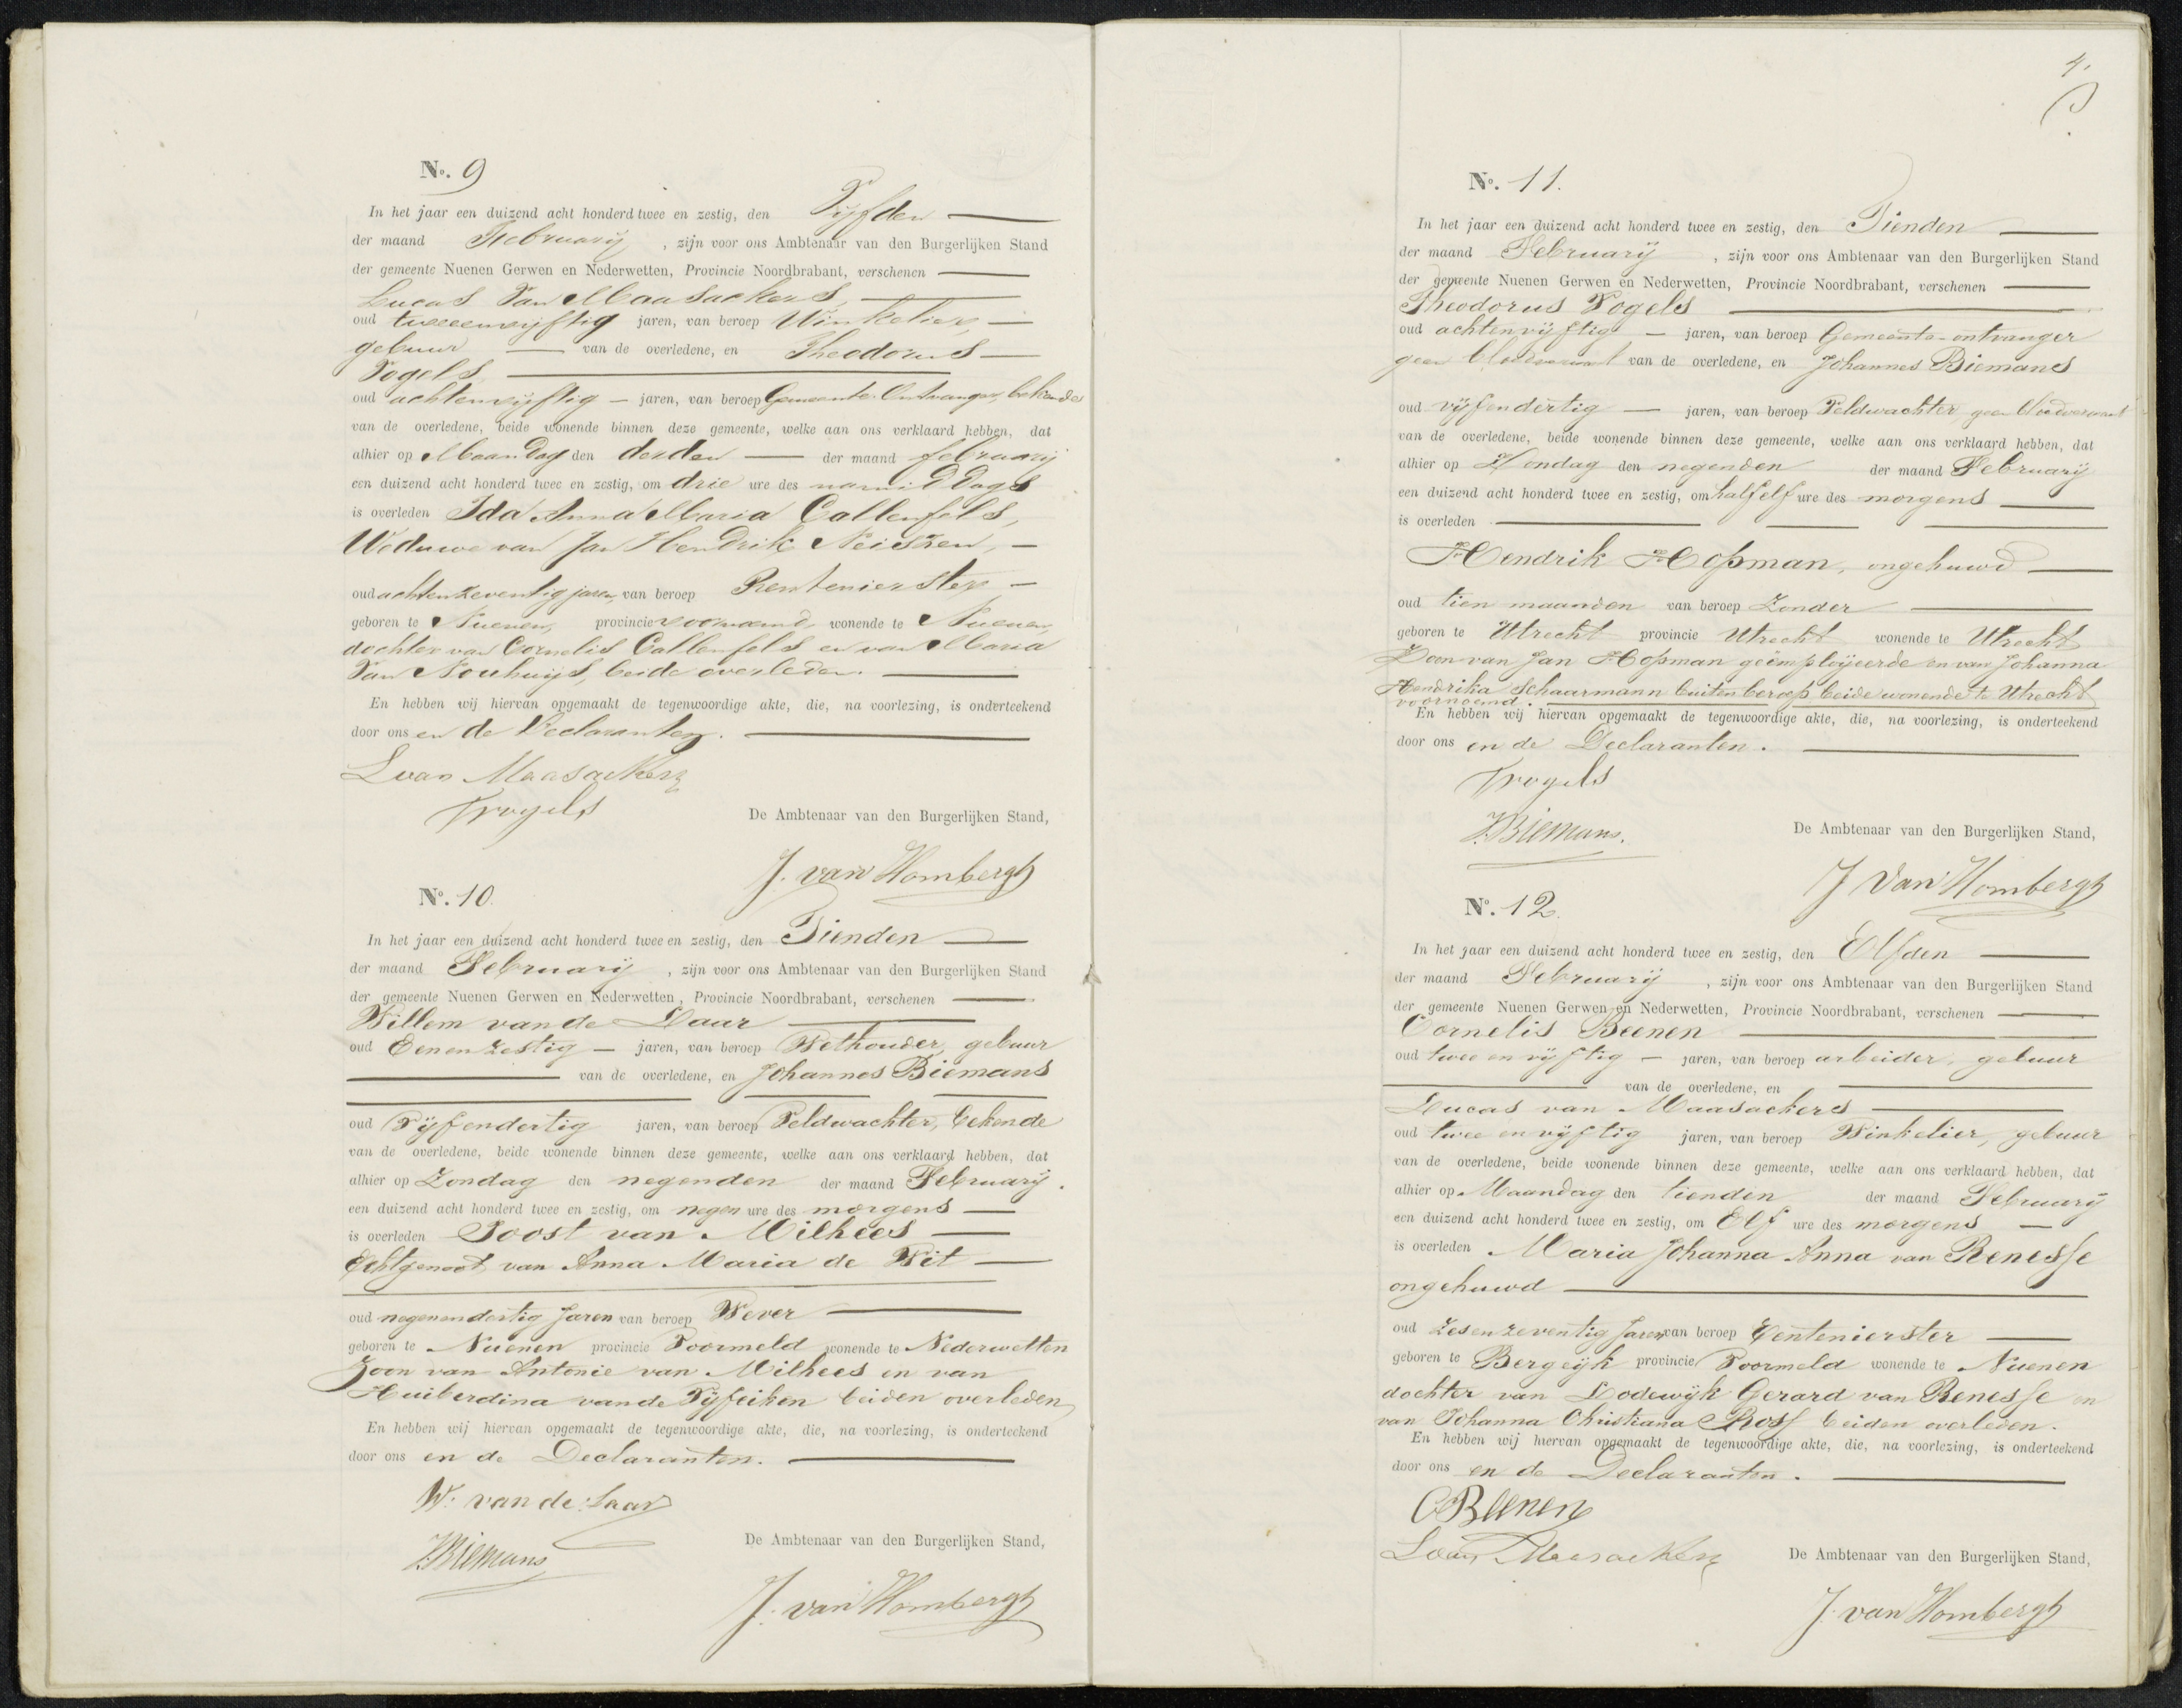 No. 9
In het jaar een duizend acht honderd twee en zestig, den Vijfden
der maand Februarij, zijn voor ons Ambtenaar van den Burgerlijken Stand
der gemeente Nuenen Gerwen en Nederwetten, Provincie Noordbrabant, verschenen
Lucas Van Maasackers,
oud tweeenvijftig jaren, van beroep Winkelier,
gebuur van de overledene, en Theodorus
Vogels,
oud achtenvijftig jaren, van beroep Gemeente-Ontvanger, bekende
van de overledene, beide wonende binnen deze gemeente, welke aan ons verklaard hebben, dat
alhier op Maandag den derden der maand februarij
een duizend acht honderd twee en zestig, om drie ure des namiddags
is overleden Ida Anna Maria Callenfels,
Weduwe van Jan Hendrik Neiszen,
oud achtenzeventig jaren, van beroep Rentenierster
geboren te Nuenen, provincie voornoemd, wonende te Nuenen,
dochter van Cornelis Callenfels en van Maria
Van Nouhuijs, beide overleden.
En hebben wij hiervan opgemaakt de tegenwoordige akte, die, na voorlezing, is onderteekend
door ons en de Declaranten.
L van Maasackers
T Vogels
De Ambtenaar van den Burgerlijken Stand,
J. van Hombergh
No. 10.
In het jaar een duizend acht honderd twee en zestig, den Tienden
der maand Februarij, zijn voor ons Ambtenaar van den Burgerlijken Stand
der gemeente Nuenen Gerwen en Nederwetten, Provincie Noordbrabant, verschenen
Willem van de Laar
oud Eenenzestig jaren, van beroep Wethouder, gebuur
van de overledene, en Johannes Biemans
oud Vijfendertig jaren, van beroep Veldwachter, bekende
van de overledene, beide wonende binnen deze gemeente, welke aan ons verklaard hebben, dat
alhier op Zondag den negenden der maand Februarij.
een duizend acht honderd twee en zestig, om negen ure des morgens
is overleden Joost van Milhees
Echtgenoot van Anna Maria de Wit
oud negenendertig Jaren van beroep Wever
geboren te Nuenen provincie Voormeld wonende te Nederwetten
Zoon van Antonie van Milhees en van
Huiberdina van de Vijfeiken beiden overleden,
En hebben wij hiervan opgemaakt de tegenwoordige akte, die, na voorlezing, is onderteekend
door ons en de Declaranten.
W. van de Laar
J. Biemans
De Ambtenaar van den Burgerlijken Stand,
J. van Hombergh
4.
No. 11.
In het jaar een duizend acht honderd twee en zestig, den Tienden
der maand Februarij, zijn voor ons Ambtenaar van den Burgerlijken Stand
der gemeente Nuenen Gerwen en Nederwetten, Provincie Noordbrabant, verschenen
Theodorus Vogels
oud achtenvijftig jaren, van beroep Gemeente-ontvanger
geen bloedverwant van de overledene, en Johannes Biemans
oud vijfendertig jaren, van beroep Veldwachter, geen bloedverwant
van de overledene, beide wonende binnen deze gemeente, welke aan ons verklaard hebben, dat
alhier op Zondag den negenden der maand Februarij
een duizend acht honderd twee en zestig, om half elf ure des morgens
is overleden
Hendrik Hopman, ongehuwd
oud tien maanden van beroep Zonder
geboren te Utrecht provincie Utrecht wonende te Utrecht
Zoon van Jan Hopman geëmploijeerde en van Johanna
Hendrika Schaarmann buiten beroep beide wonende te Utrecht
voornoemd.
En hebben wij hiervan opgemaakt de tegenwoordige akte, die, na voorlezing, is onderteekend
door ons en de Declaranten.
T Vogels
J. Biemans.
De Ambtenaar van den Burgerlijken Stand,
J van Hombergh
No. 12.
In het jaar een duizend acht honderd twee en zestig, den Elfden
der maand Februarij, zijn voor ons Ambtenaar van den Burgerlijken Stand
der gemeente Nuenen Gerwen en Nederwetten, Provincie Noordbrabant, verschenen
Cornelis Beenen
oud twee en vijftig jaren, van beroep arbeider, gebuur
van de overledene, en
Lucas van Maasackers
oud twee en vijftig jaren, van beroep Winkelier, gebuur
van de overledene, beide wonende binnen deze gemeente, welke aan ons verklaard hebben, dat
alhier op Maandag den tienden der maand Februarij
een duizend acht honderd twee en zestig, om Elf ure des morgens
is overleden Maria Johanna Anna van Renesse
ongehuwd
oud zesenzeventig Jaren van beroep Rentenierster
geboren te Bergeijk provincie Voormeld wonende te Nuenen
dochter van Lodewijk Gerard van Renesse en
van Johanna Christiana Ross beiden overleden.
En hebben wij hiervan opgemaakt de tegenwoordige akte, die, na voorlezing, is onderteekend
door ons en de Declaranten.
C Beenen
L van Maasackers
De Ambtenaar van den Burgerlijken Stand,
J. van Hombergh